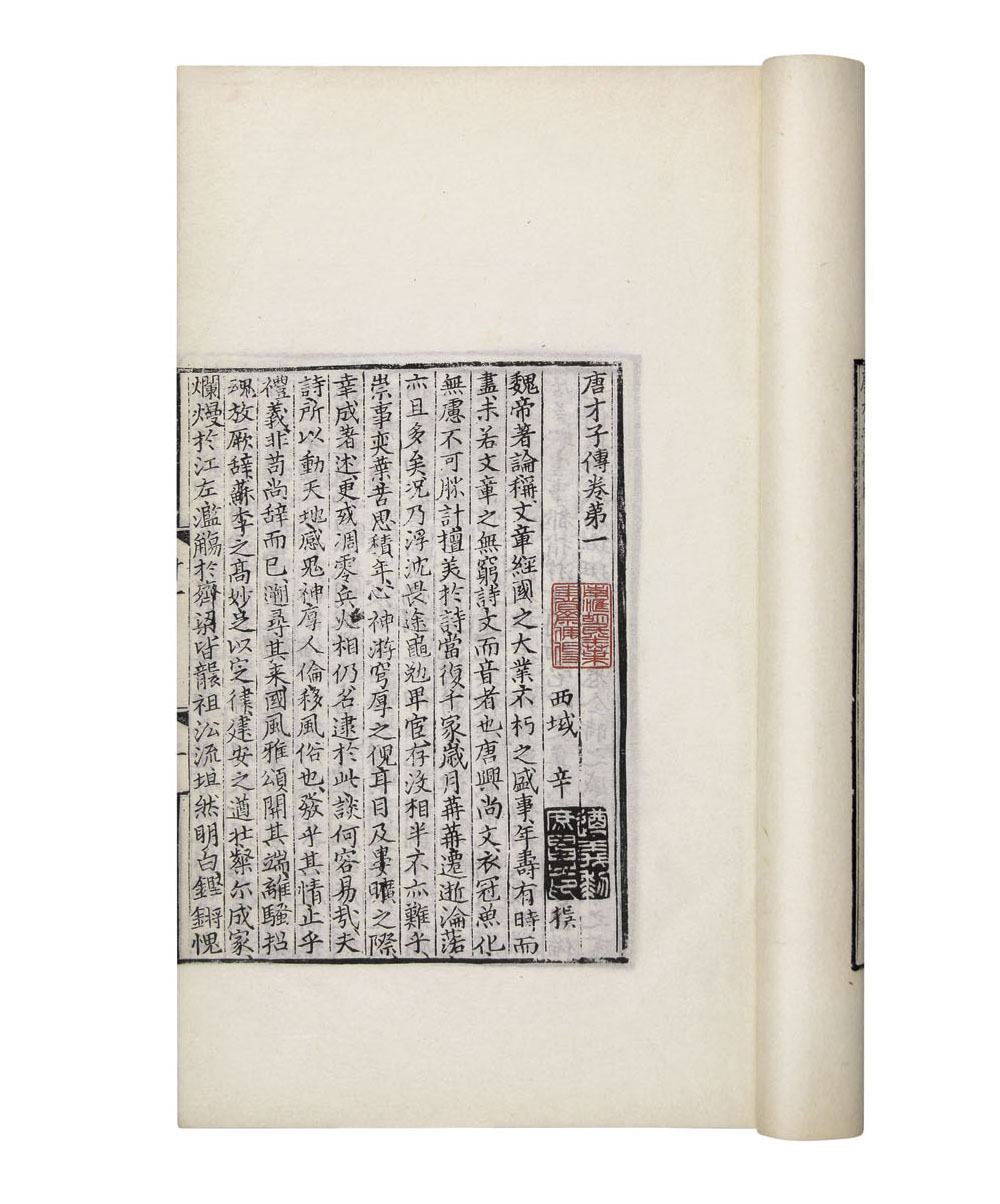 唐才子傳卷第一
西域 辛 撰
魏帝著論稱文章經國之大業不朽之盛事年壽有時而
盡未若文章之無窮詩文而音者也唐興尚文衣冠魚化
無慮不可勝計擅美於詩當復千家歲月苒苒遷逝淪落
亦且多矣况乃浮沈畏途黽勉卑宦存沒相半不亦難乎
崇事奕葉苦思積年心神游穹厚之倪耳目及婁曠之際
幸成著述更或凋零兵火相仍名逮於此談何容易哉夫
詩所以動天地感鬼神厚人倫移風俗也發乎其情止乎
禮義非苟尚辞而已溯尋其来國風雅頌開其端離騷招
魂放厥辞蘇李之高妙足以定律建安之遒壮粲尔成家
爛熳於江左濫觴於齊梁皆襲祖沿流坦然明白鏗鏘愧
遵義黎庶昌印